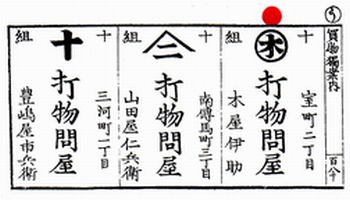 う
買物獨案内
百八十
十
室町二丁目
木
打物問屋
組
木屋伊助
十
南傳馬町三丁目
二
打物問屋
組
山田屋仁兵衛
十
三河町一丁目
十
打物問屋
組
豊嶋屋市兵衛